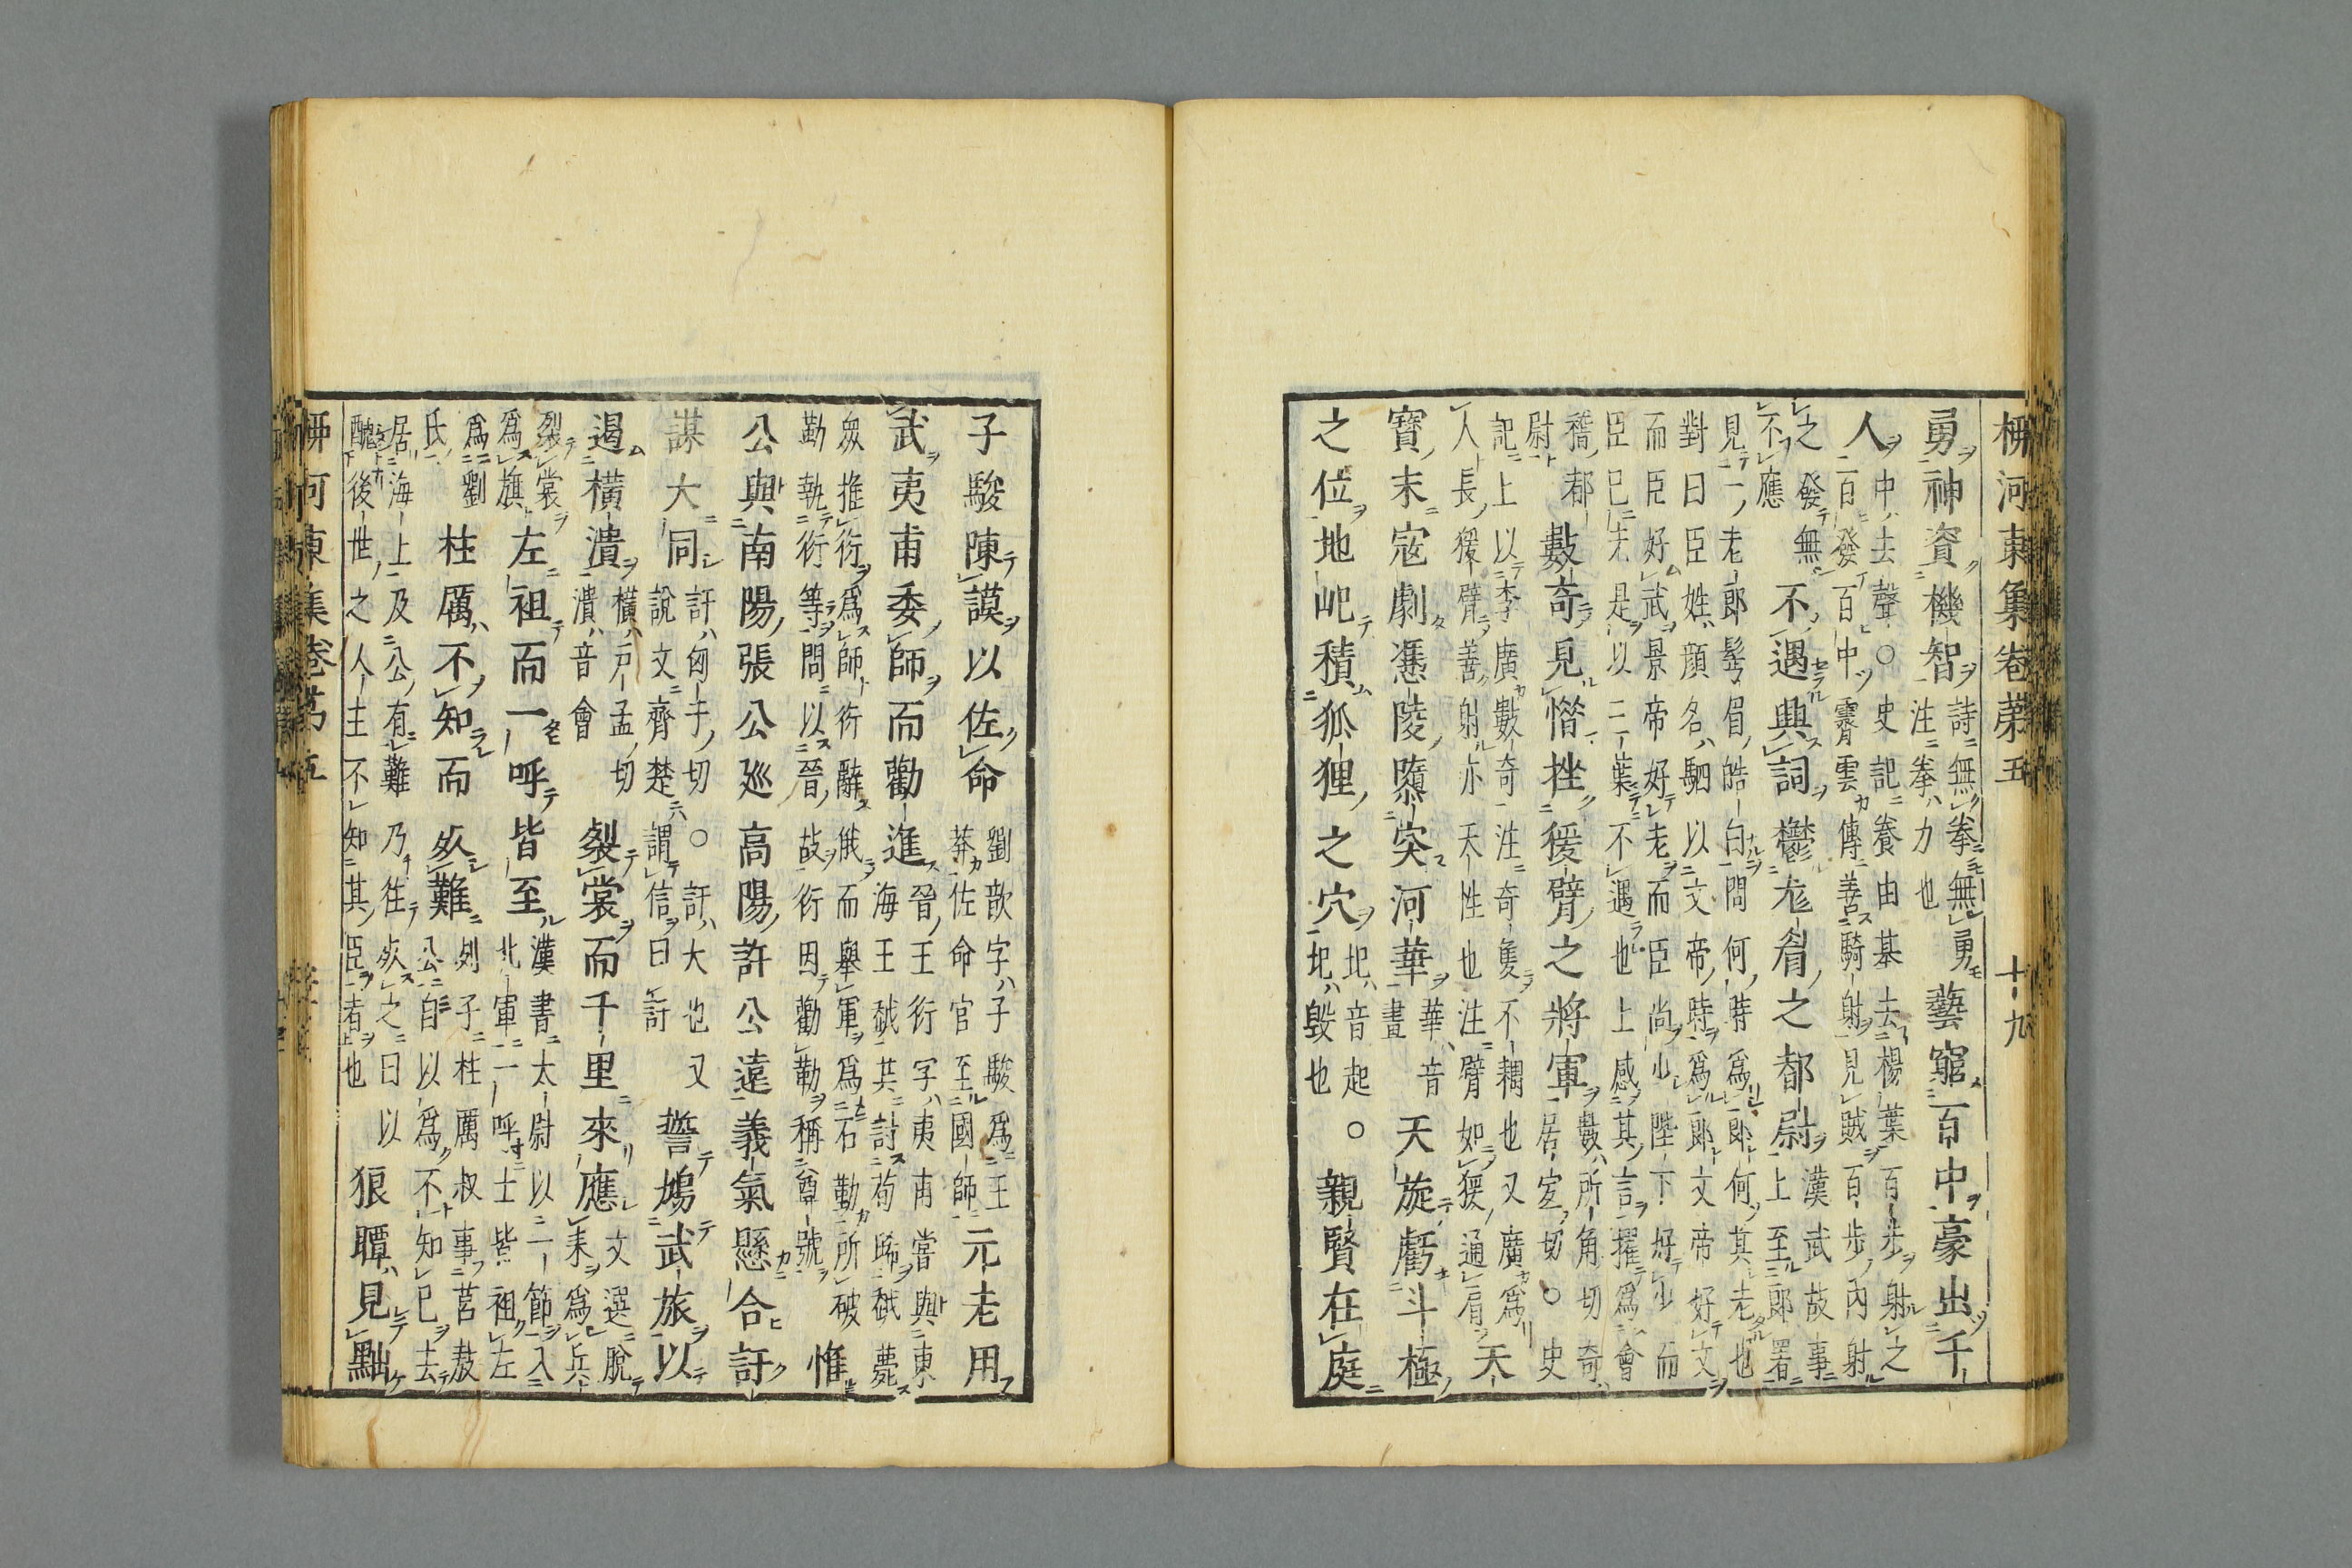 柳河東集卷第五 十九
勇神資機智
詩無拳無勇
注拳力也
藝窮百中豪出千
人
中去聲○史記養由基去楊葉百步射之
百發百中霽雲傳善騎射見賊百步內射
之發無
不應
不遇興詞鬱尨眉之都尉
漢武故事
上至郎署
見一老郎髩眉皓白問何時為郎何其老也
對曰臣姓顏名駟以文帝時為郎文帝好文
而臣好武景帝好老而臣尚少陛下好少而
臣已老是以二葉不遇也上感其言擢為會
稽都
尉
數奇見惜挫猨臂之將軍
數所角切奇
居宜切○史
記上以李廣數奇注奇隻不耦也又廣為
人長猨臂善射亦天性也注臂如猨通肩
天
寶末寇劇憑陵隳突河華
華音
畫
天旋虧斗極
之位地圮積狐狸之穴
圮音起
圮毀也
○親賢在庭
子駿陳謨以佐命
劉歆字子駿為王
莽佐命官至國師
元老用
武夷甫委師而勸進
晉王衍字夷甫嘗與東
海王越共討苟晞越薨
眾推衍為師衍辭俄而舉軍為石勒所破
勒執衍等問以晉故衍因勸勒稱尊號
惟
公與南陽張公巡高陽許公遠義氣懸合訏
謀大同
訏匈于切○訏大也又
說文齊楚謂信曰訏
誓鳩武旅以
遏橫潰
橫戶孟切
潰音會
裂裳而千里來應
文選脫
耒為兵
裂裳
為旗
左袒而一呼皆至
漢書太尉以一節入
北軍一呼士皆袒左
為劉
氏
柱厲不知而死難
列子柱厲叔事莒敖
公自以為不知已去
居海上及公有難乃往死之曰以
醜後世之人主不知其臣者也
狼瞫見黜
柳河東集卷第五